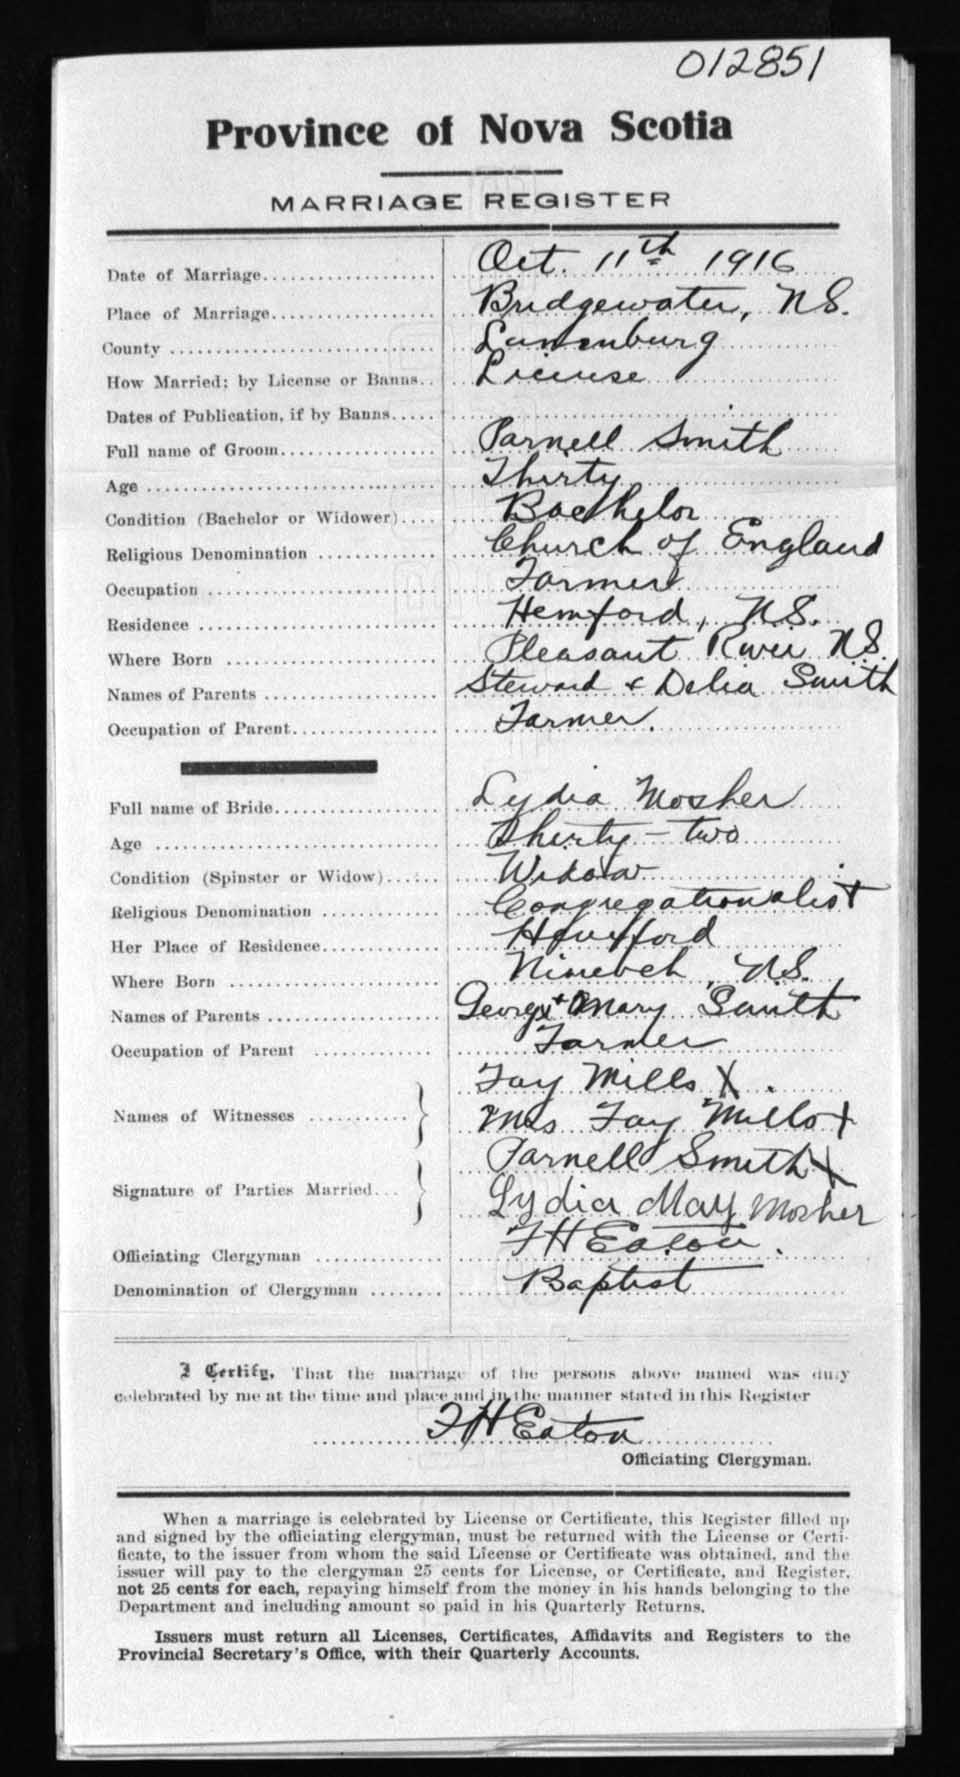 012851
Province of Nova Scotia
MARRIAGE REGISTER
Date of Marriage.................... Oct. 11th 1916
Place of Marriage.................. Bridgewater, N.S.
County .............................. Lunenburg
How Married; by License or Banns.. License
Dates of Publication, if by Banns.....
Full name of Groom................. Parnell Smith
Age ................................. Thirty
Condition (Bachelor or Widower).... Bachelor
Religious Denomination ............. Church of England
Occupation .......................... Farmer
Residence ........................... Hemford, N.S.
Where Born ......................... Pleasant River N.S.
Names of Parents ................... Steward & Delia Smith
Occupation of Parent................ Farmer.
Full name of Bride................... Lydia Mosher
Age ................................. Thirty-two
Condition (Spinster or Widow)....... Widow
Religious Denomination ............. Congregationalist
Her Place of Residence.............. Hemford
Where Born ......................... Nineveh, N.S.
Names of Parents ................... George + Mary Smith
Occupation of Parent .............. Farmer
Fay Mills X.
Names of Witnesses ........... } Mrs Fay Mills X
Parnell Smith X
Signature of Parties Married... }
Lydia May Mosher
Officiating Clergyman .............. F H Eaton.
Denomination of Clergyman ........ Baptist
I Certify, That the marriage of the persons above named was duly
celebrated by me at the time and place and in the manner stated in this Register
F H Eaton
Officiating Clergyman.
When a marriage is celebrated by License or Certificate, this Register filled up
and signed by the officiating clergyman, must be returned with the License or Certi-
ficate, to the issuer from whom the said License or Certificate was obtained, and the
issuer will pay to the clergyman 25 cents for License, or Certificate, and Register,
not 25 cents for each, repaying himself from the money in his hands belonging to the
Department and including amount so paid in his Quarterly Returns.
Issuers must return all Licenses, Certificates, Affidavits and Registers to the
Provincial Secretary's Office, with their Quarterly Accounts.